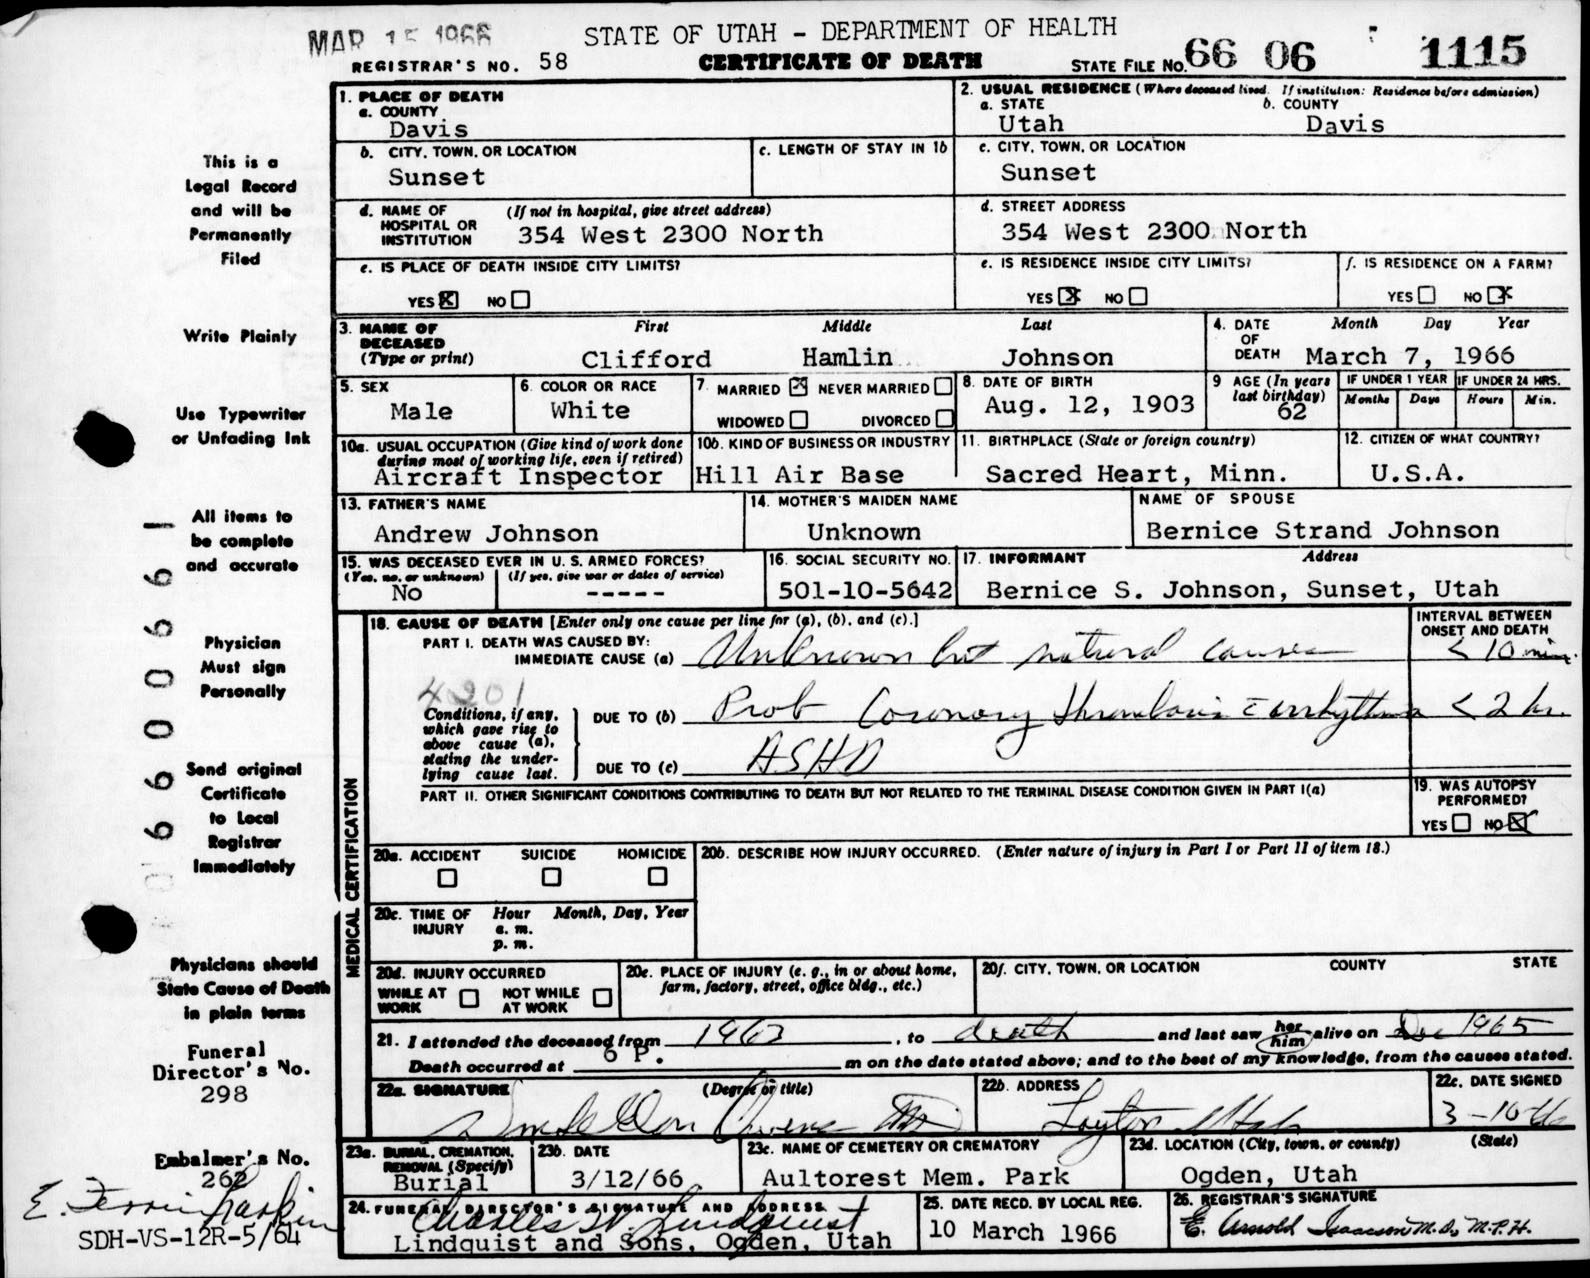 MAR 15 1966
STATE OF UTAH - DEPARTMENT OF HEALTH
REGISTRAR'S NO. 58
CERTIFICATE OF DEATH
STATE FILE NO. 66 06 1115
This is a
Legal Record
and will be
Permanently
Filed
Write Plainly
Use Typewriter
or Unfading Ink
All items to
be complete
and accurate
Physician
Must sign
Personally
Send original
Certificate
to Local
Registrar
Immediately
Physicians should
State Cause of Death
in plain terms
Funeral
Director's No.
298
Embalmer's No.
262
SDH-VS-12R-5/64
1. PLACE OF DEATH
a. COUNTY
Davis
2. USUAL RESIDENCE (Where deceased lived. If institution: Residence before admission)
a. STATE b. COUNTY
Utah Davis
b. CITY, TOWN, OR LOCATION
Sunset
c. LENGTH OF STAY IN 1b
c. CITY, TOWN, OR LOCATION
Sunset
d. NAME OF (If not in hospital, give street address)
HOSPITAL OR
INSTITUTION 354 West 2300 North
d. STREET ADDRESS
354 West 2300 North
e. IS PLACE OF DEATH INSIDE CITY LIMITS?
YES X NO
e. IS RESIDENCE INSIDE CITY LIMITS?
YES X NO
f. IS RESIDENCE ON A FARM?
YES NO X
3. NAME OF First Middle Last
DECEASED
(Type or print) Clifford Hamlin Johnson
4. DATE Month Day Year
OF
DEATH March 7, 1966
5. SEX
Male
6. COLOR OR RACE
White
7. MARRIED X NEVER MARRIED
WIDOWED DIVORCED
8. DATE OF BIRTH
Aug. 12, 1903
9 AGE (In years
last birthday)
62
IF UNDER 1 YEAR IF UNDER 24 HRS.
Months Days Hours Min.
10a. USUAL OCCUPATION (Give kind of work done
during most of working life, even if retired)
Aircraft Inspector
10b. KIND OF BUSINESS OR INDUSTRY
Hill Air Base
11. BIRTHPLACE (State or foreign country)
Sacred Heart, Minn.
12. CITIZEN OF WHAT COUNTRY?
U.S.A.
13. FATHER'S NAME
Andrew Johnson
14. MOTHER'S MAIDEN NAME
Unknown
NAME OF SPOUSE
Bernice Strand Johnson
15. WAS DECEASED EVER IN U. S. ARMED FORCES?
(Yes, no, or unknown) (If yes, give war or dates of service)
No -----
16. SOCIAL SECURITY NO.
501-10-5642
17. INFORMANT Address
Bernice S. Johnson, Sunset, Utah
MEDICAL CERTIFICATION
18. CAUSE OF DEATH [Enter only one cause per line for (a), (b), and (c).]
INTERVAL BETWEEN
ONSET AND DEATH
PART I. DEATH WAS CAUSED BY:
IMMEDIATE CAUSE (a) Unknown but natural causes < 10 min.
4201
Conditions, if any,
which gave rise to
above cause (a),
stating the under-
lying cause last.
DUE TO (b) Prob Coronary thrombosis c̄ arrhythmia < 2 hr.
DUE TO (c) ASHD
PART II. OTHER SIGNIFICANT CONDITIONS CONTRIBUTING TO DEATH BUT NOT RELATED TO THE TERMINAL DISEASE CONDITION GIVEN IN PART I(a)
19. WAS AUTOPSY
PERFORMED?
YES NO X
20a. ACCIDENT SUICIDE HOMICIDE
20b. DESCRIBE HOW INJURY OCCURRED. (Enter nature of injury in Part I or Part II of item 18.)
20c. TIME OF Hour Month, Day, Year
INJURY a. m.
p. m.
20d. INJURY OCCURRED
WHILE AT NOT WHILE
WORK AT WORK
20e. PLACE OF INJURY (e. g., in or about home,
farm, factory, street, office bldg., etc.)
20f. CITY, TOWN, OR LOCATION COUNTY STATE
21. I attended the deceased from 1963, to death and last saw her him alive on Dec 1965
Death occurred at 6 P. m on the date stated above; and to the best of my knowledge, from the causes stated.
22a. SIGNATURE (Degree or title)
Owens MD
22b. ADDRESS
Layton Utah
22c. DATE SIGNED
3-10-66
23a. BURIAL, CREMATION,
REMOVAL (Specify)
Burial
23b. DATE
3/12/66
23c. NAME OF CEMETERY OR CREMATORY
Aultorest Mem. Park
23d. LOCATION (City, town, or county) (State)
Ogden, Utah
24. FUNERAL DIRECTOR'S SIGNATURE AND ADDRESS
Charles W. Lindquist
Lindquist and Sons, Ogden, Utah
25. DATE RECD. BY LOCAL REG.
10 March 1966
26. REGISTRAR'S SIGNATURE
E. Arnold Isaacson M.D., M.P.H.